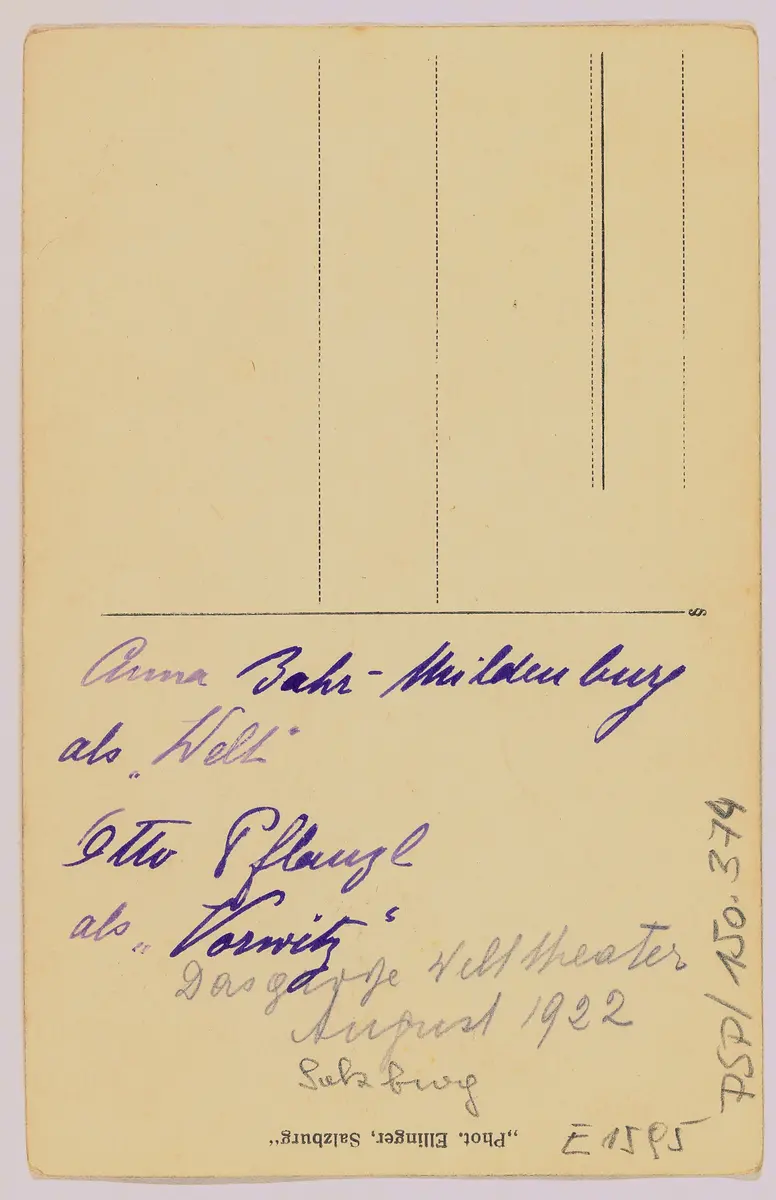 Anna Bahr-Mildenburg
als „Welt"
Otto Pflanzl
als „Vorwitz"
Das große Welttheater
August 1922
Salzburg
„Phot. Ellinger, Salzburg"
E 1595
PSP/150.374